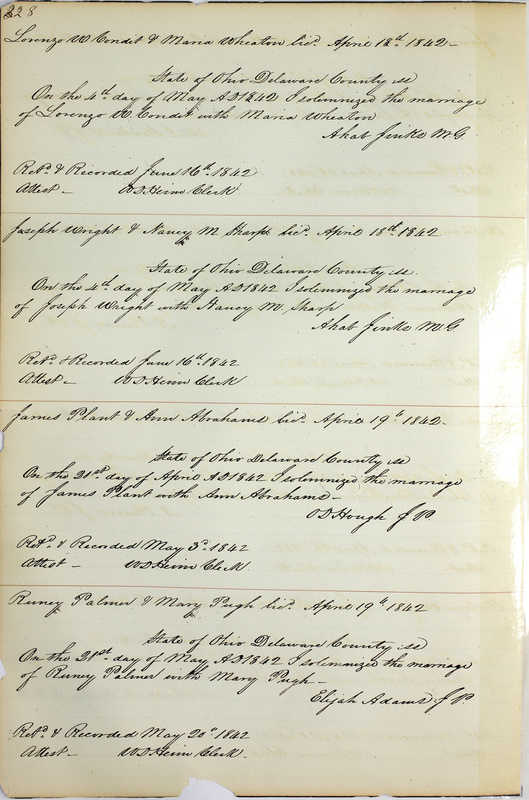 328
Lorenzo W Condit & Maria Wheaton lic. April 18th 1842 -
State of Ohio Delaware County ss
On the 4th day of May AD 1842 I solemnized the marriage
of Lorenzo W Condit with Maria Wheaton
Ahab Jinks M.G.
Retd & Recorded June 16th 1842
Attest - W D Heim Clerk.
Joseph Wright & Nancy M Sharp lic. April 18th 1842
State of Ohio Delaware County ss.
On the 4th day of May AD 1842 I solemnized the marriage
of Joseph Wright with Nancy M. Sharp
Ahab Jinks M.G
Retd & Recorded June 16th 1842
Attest - W D Heim Clerk
James Plant & Ann Abrahams lic. April 19th 1842.
State of Ohio Delaware County ss
On the 21st day of April AD 1842 I solemnized the marriage
of James Plant with Ann Abrahams -
O D Hough J P.
Retd & Recorded May 3d 1842
Attest - W D Heim Clerk.
Runey Palmer & Mary Pugh lic. April 19th 1842
State of Ohio Delaware County ss
On the 21st day of May AD 1842 I solemnized the marriage
of Runey Palmer with Mary Pugh -
Elijah Adams J P.
Retd & Recorded May 20th 1842
Attest - W D Heim Clerk.